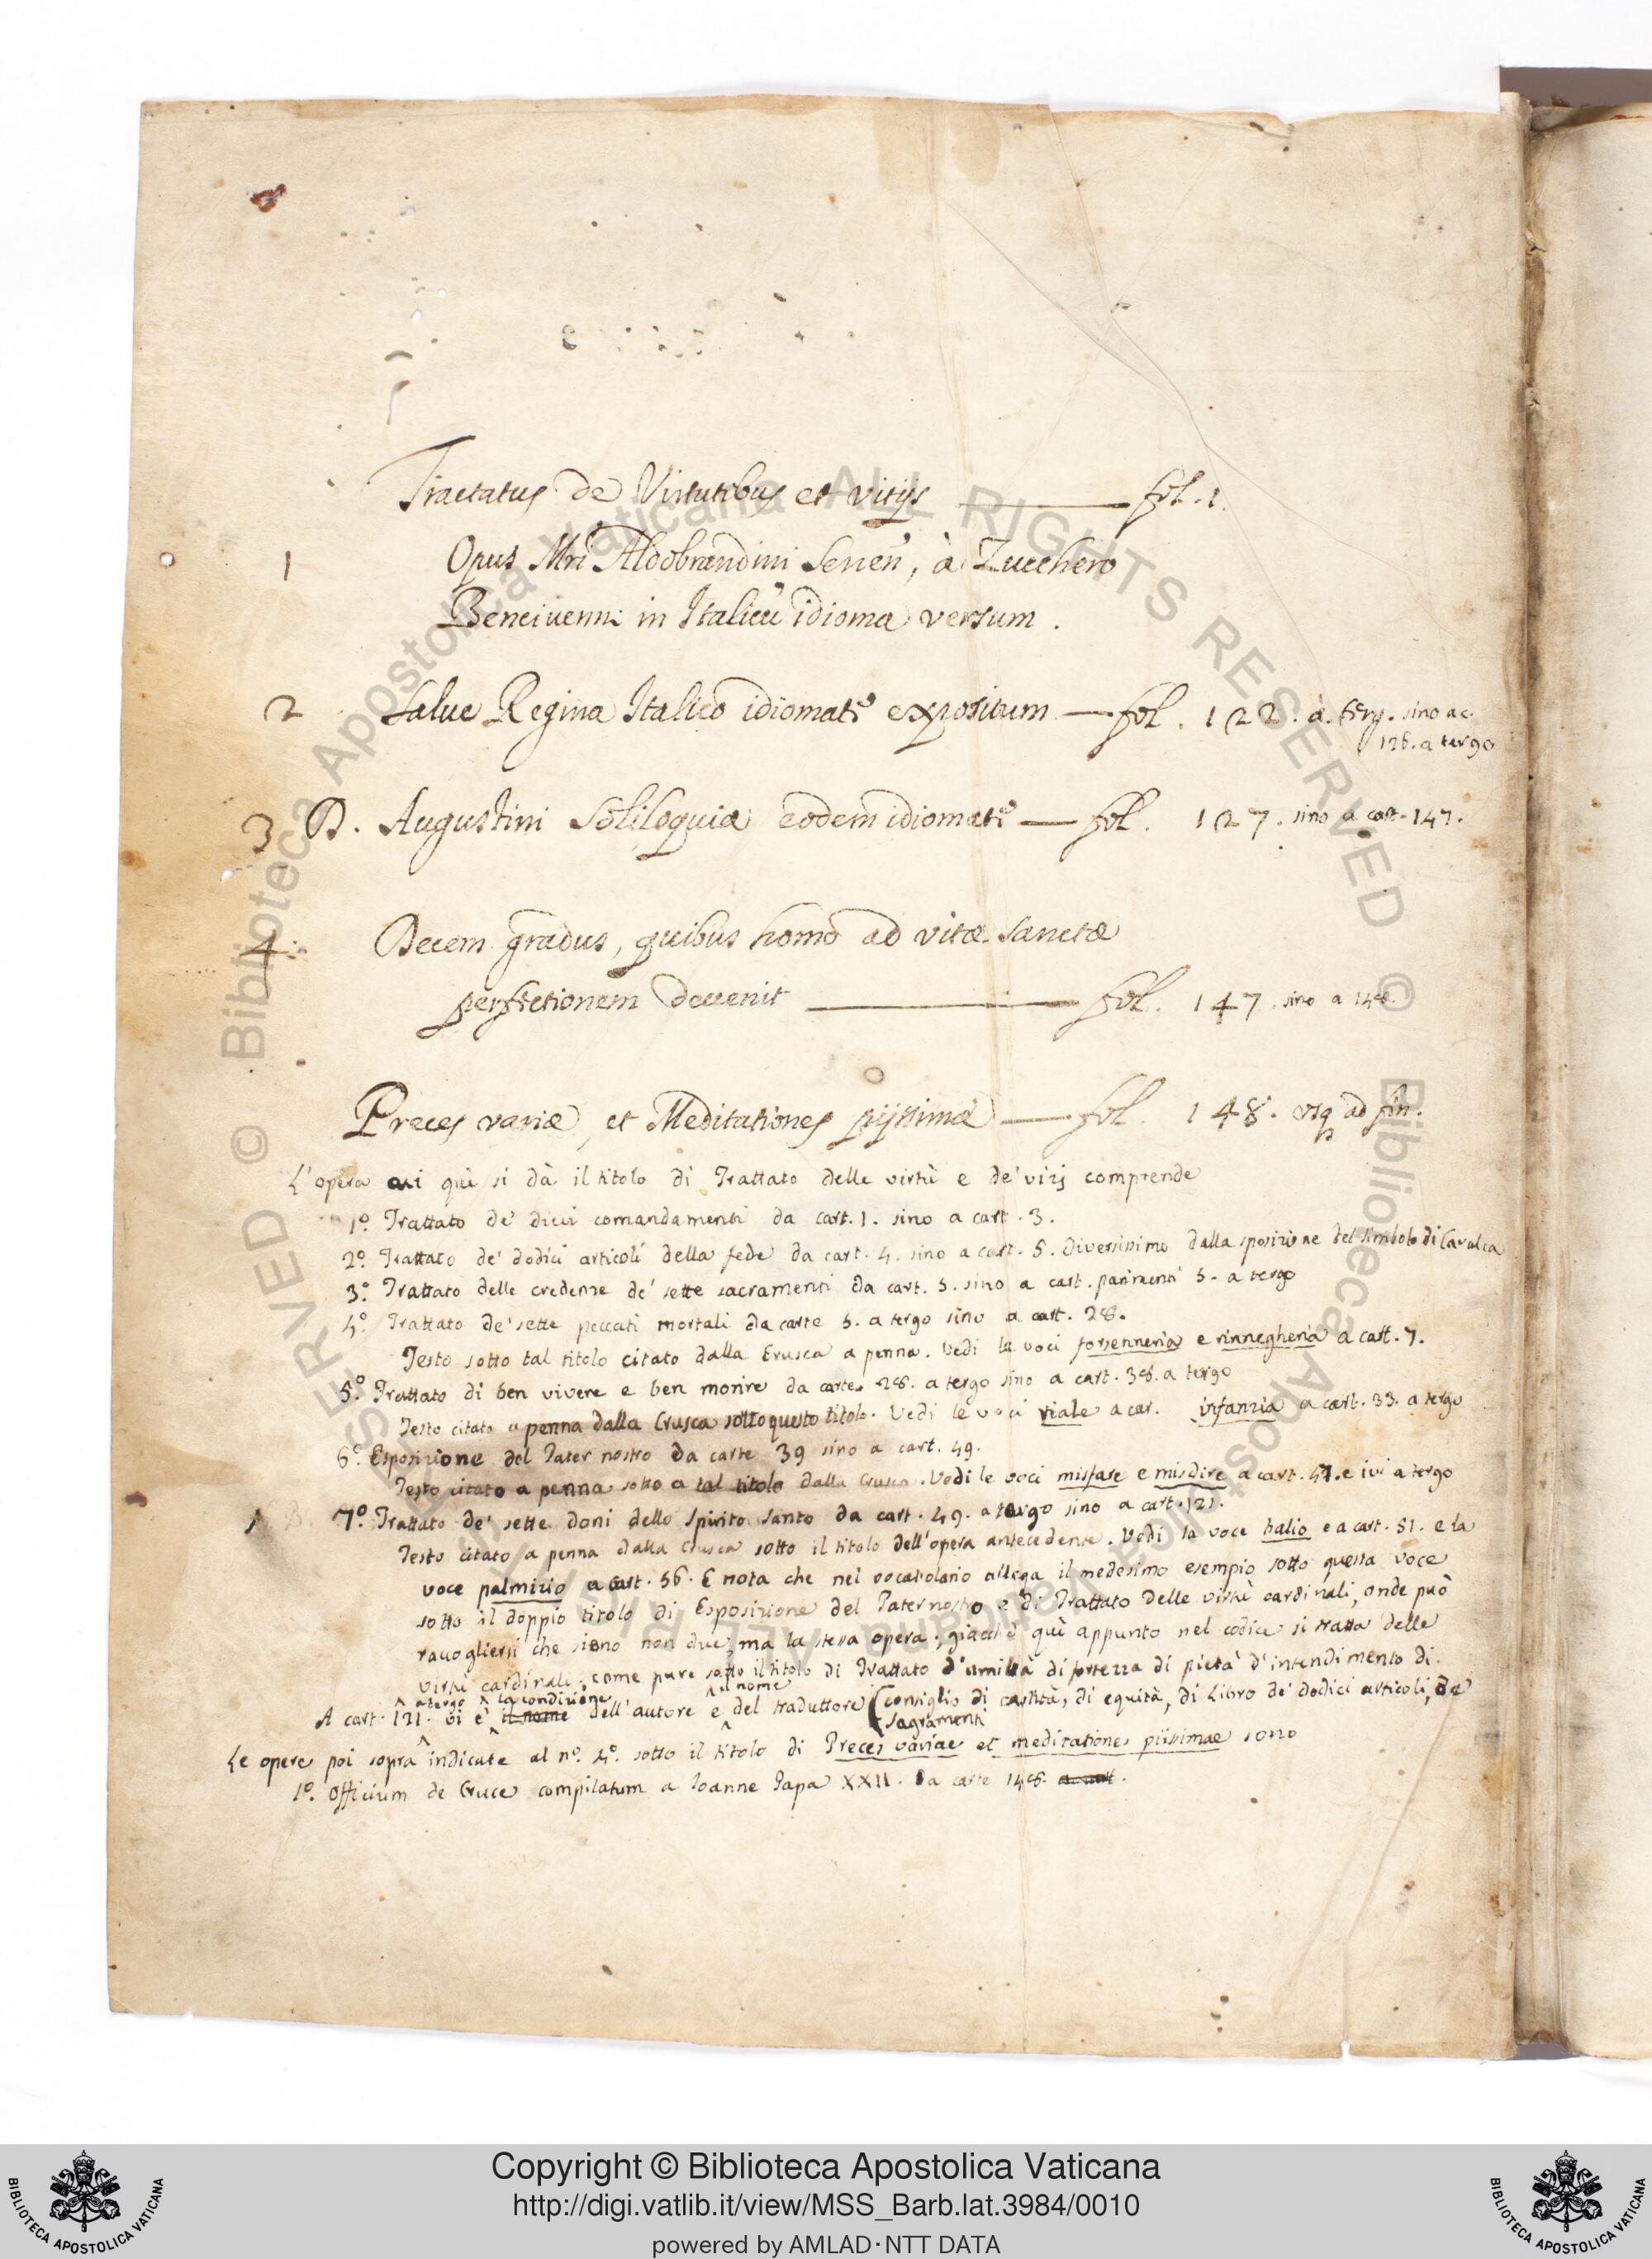 Tractatus de Virtutibus et vitijs — fol. 1.
1 Opus Mri Aldobrandini Senen, à Zucchero
Bencivenni in Italicu idioma versum.
2 Salve Regina Italico idiomate expositum — fol. 122. à terg. sino a c.
126. a tergo
3 D. Augustini Soliloquia eodem idiomate — fol. 127. sino a cart. 147.
4 Decem gradus, quibus homo ad vitæ sanctæ
perfectionem devenit — fol. 147. sino a 148.
Preces variæ, et Meditationes pijssimæ — fol. 148. usq ad fin.
L'opera cui quì si dà il titolo di Trattato delle virtù e de' vizj comprende
1º. Trattato de' dieci comandamenti da cart. 1. sino a cart. 3.
2º. Trattato de' dodici articoli della fede da cart. 4. sino a cart. 5. diversissimo dalla sposizione del simbolo di Cavalca
3º. Trattato delle credenze de' sette sacramenti da cart. 5. sino a cart. parimenti 5. a tergo
4º. Trattato de' sette peccati mortali da carte 5. a tergo sino a cart. 28.
Testo sotto tal titolo citato dalla Crusca a penna. Vedi le voci forsenneria e rinnegheria a cart. 7.
5º. Trattato di ben vivere e ben morire da carte 28. a tergo sino a cart. 38. a tergo
Testo citato a penna dalla Crusca sotto questo titolo. Vedi le voci viale a car. infanzia a cart. 33. a tergo
6º. Esposizione del Pater nostro da carte 39 sino a cart. 49.
Testo citato a penna sotto a tal titolo dalla Crusca. Vedi le voci misfare e misdire a cart. 47. e ivi a tergo
7º. Trattato de' sette doni dello Spirito Santo da cart. 49. a tergo sino a cart. 121.
Testo citato a penna dalla Crusca sotto il titolo dell'opera antecedente. Vedi la voce halio e a cart. 51. e la
voce palmizio a cart. 56. E nota che nel vocabolario allega il medesimo esempio sotto questa voce
sotto il doppio titolo di Esposizione del Paternostro e di Trattato delle virtù cardinali, onde può
raccogliersi che sieno non due, ma la stessa opera, giacchè quì appunto nel codice si tratta delle
virtù cardinali, come pure sotto il titolo di Trattato d'umiltà di fortezza di pietà d'intendimento di
A cart. 121. a tergo vi è la condizione il nome dell'autore e il nome del traduttore (consiglio di castità, di equità, di Libro de' dodici articoli, de
sagramenti
Le opere poi sopra indicate al nº. 4º. sotto il titolo di Preces variae et meditationes piissimae sono
1º. Officium de Cruce compilatum a Ioanne Papa XXII. da carte 148.
ALL RIGHTS RESERVED © Biblioteca Apostolica Vaticana
Copyright © Biblioteca Apostolica Vaticana
http://digi.vatlib.it/view/MSS_Barb.lat.3984/0010
powered by AMLAD·NTT DATA
BIBLIOTECA APOSTOLICA VATICANA
BIBLIOTECA APOSTOLICA VATICANA